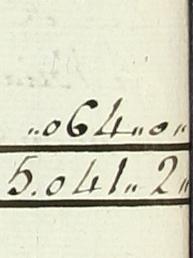 „064„0„
5.041„2„